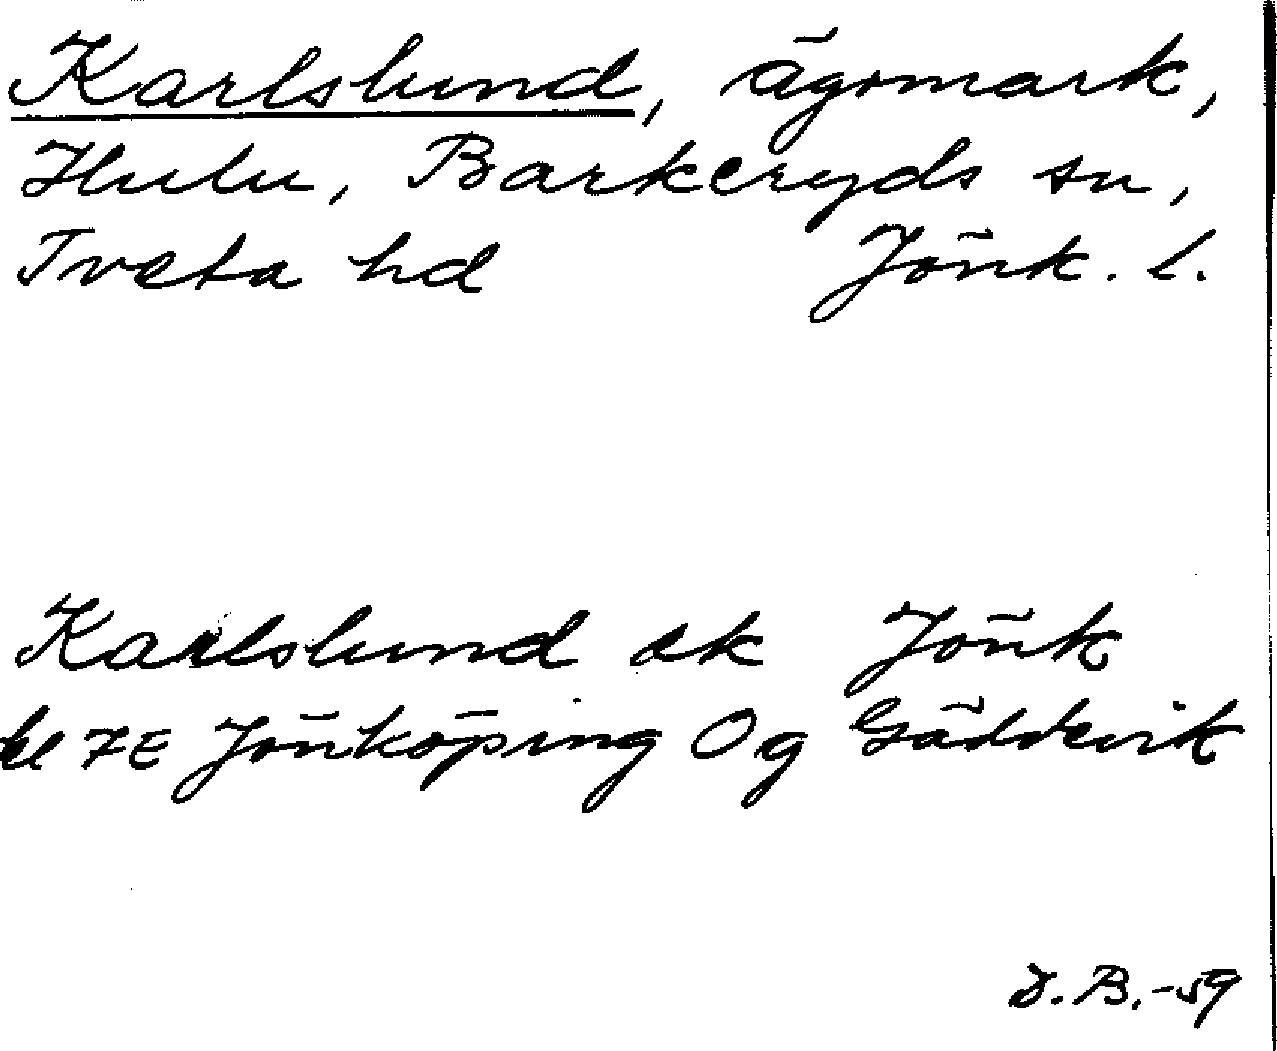 Karlslund, ägomark,
Hulu, Barkeryds sn,
Tveta hd Jönk. l.
Karlslund ek Jönk
bl 7E Jönköping Og Gäddevik
J.B.-59